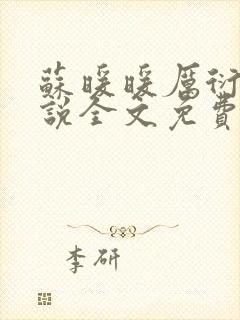 蘇暖暖厲衍
說全文免費
李研